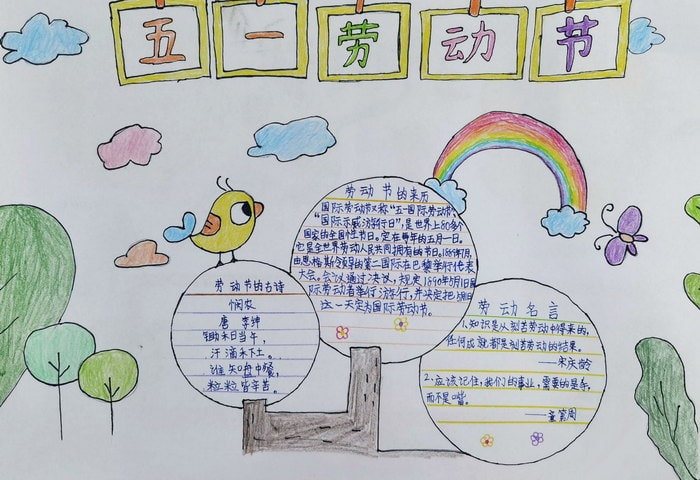 五一劳动节
劳动节的来历
国际劳动节又称"五一国际劳动节"、
"国际示威游行日",是世界上80多个
国家的全国性节日。定在每年的五月一日。
它是全世界劳动人民共同拥有的节日。1889年7月,
由恩格斯领导的第二国际在巴黎举行代表
大会。会议通过决议,规定1890年5月1日国
际劳动者举行游行,并决定把5月1日
这一天定为国际劳动节。
劳动节的古诗
悯农
唐 李绅
锄禾日当午,
汗滴禾下土。
谁知盘中餐,
粒粒皆辛苦。
劳动名言
1、知识是从刻苦劳动中得来的,
任何成就都是刻苦劳动的结果。
——宋庆龄
2、应该记住,我们的事业,需要的是手,
而不是嘴。
——童第周